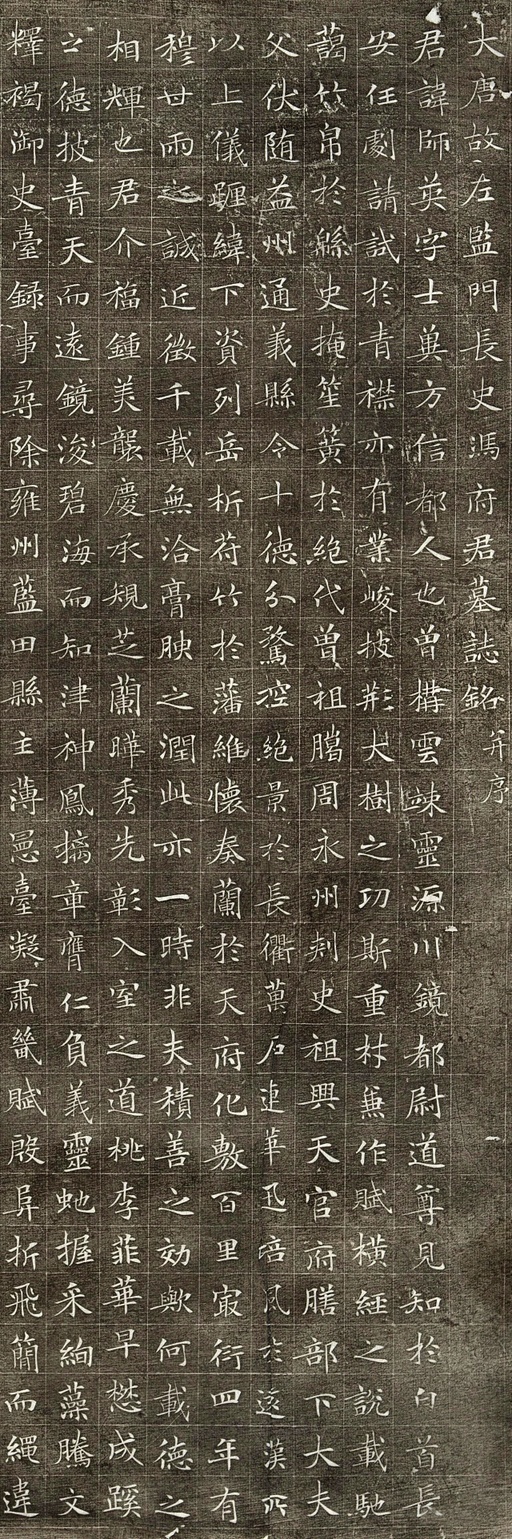 大唐故左監門長史馮府君墓誌銘 并序
君諱師英字士兾方信都人也曾構雲竦靈源川鏡都尉道尊見知於白首長
安任劇請試於青襟亦有業峻披荆大樹之功斯重材兼作賦橫經之說載馳
藹竹帛於緜史掩笙簧於絕代曾祖騰周永州刾史祖興天官府膳部下大夫
父伏随益州通義縣令十德分騖控絕景於長衢萬石連華迅培風於遠漢所
以上儀躔緯下資列岳析苻竹於藩維懷奏蘭於天府化敷百里寂衍四年有
穆甘雨之誠近徵千載無洽膏腴之潤此亦一時非夫積善之効歟何載德之
相輝也君介福鍾美襲慶承規芝蘭曄秀先彰入室之道桃李菲華早懋成蹊
之德披青天而遠鏡浚碧海而知津神鳳摛章膺仁負義靈虵握采絢藻騰文
釋褐御史臺錄事尋除雍州藍田縣主薄霜臺凝肅畿賦殷阜折飛簡而繩違